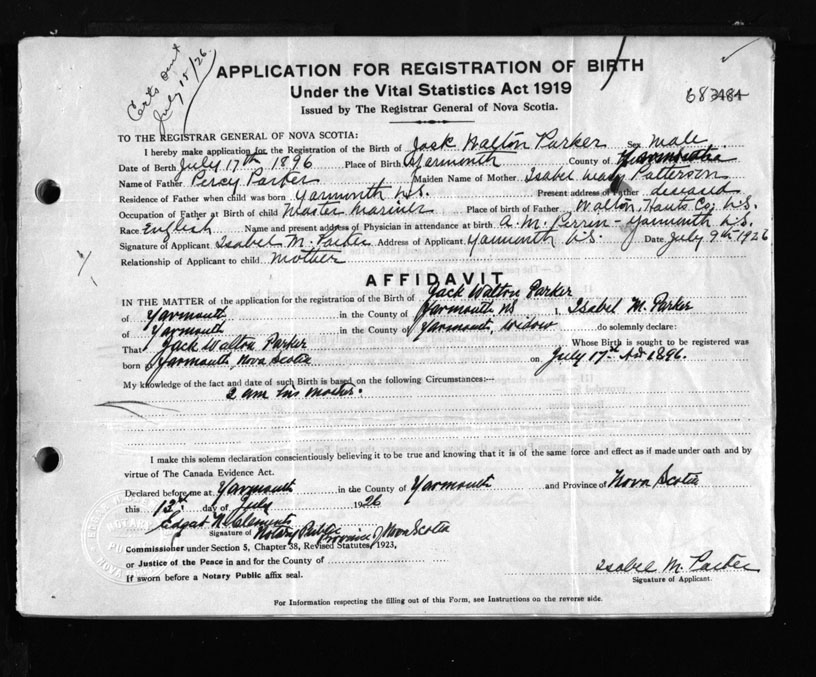 Certs out
July 15/26.
APPLICATION FOR REGISTRATION OF BIRTH
Under the Vital Statistics Act 1919
Issued by The Registrar General of Nova Scotia.
TO THE REGISTRAR GENERAL OF NOVA SCOTIA:
I hereby make application for the Registration of the Birth of Jack Walton Parker Sex Male
Date of Birth July 17th 1896 Place of Birth Yarmouth County of
Name of Father Percy Parker Maiden Name of Mother Isabel Mary Patterson
Residence of Father when child was born Yarmouth N.S. Present address of Father deceased
Occupation of Father at Birth of child Master Mariner Place of birth of Father Walton, Hants Co; N.S.
Race English Name and present address of Physician in attendance at birth A. M. Perrin - Yarmouth N.S.
Signature of Applicant Isabel M. Parker Address of Applicant Yarmouth N.S. Date July 9th 1926
Relationship of Applicant to child mother
AFFIDAVIT
IN THE MATTER of the application for the registration of the Birth of Jack Walton Parker
of Yarmouth, in the County of Yarmouth NS I, Isabel M. Parker
of Yarmouth in the County of Yarmouth, Widow do solemnly declare:
That Jack Walton Parker Whose Birth is sought to be registered was
born at Yarmouth, Nova Scotia on July 17th AD 1896.
My knowledge of the fact and date of such Birth is based on the following Circumstances:—
I am his mother.
I make this solemn declaration conscientiously believing it to be true and knowing that it is of the same force and effect as if made under oath and by
virtue of The Canada Evidence Act.
Declared before me at Yarmouth in the County of Yarmouth and Province of Nova Scotia
this 12th day of July 1926
Edgar N. Clements
Signature of Notary Public Province of Nova Scotia
Commissioner under Section 5, Chapter 38, Revised Statutes, 1923,
or Justice of the Peace in and for the County of
If sworn before a Notary Public affix seal.
Isabel M. Parker
Signature of Applicant.
For Information respecting the filling out of this Form, see Instructions on the reverse side.